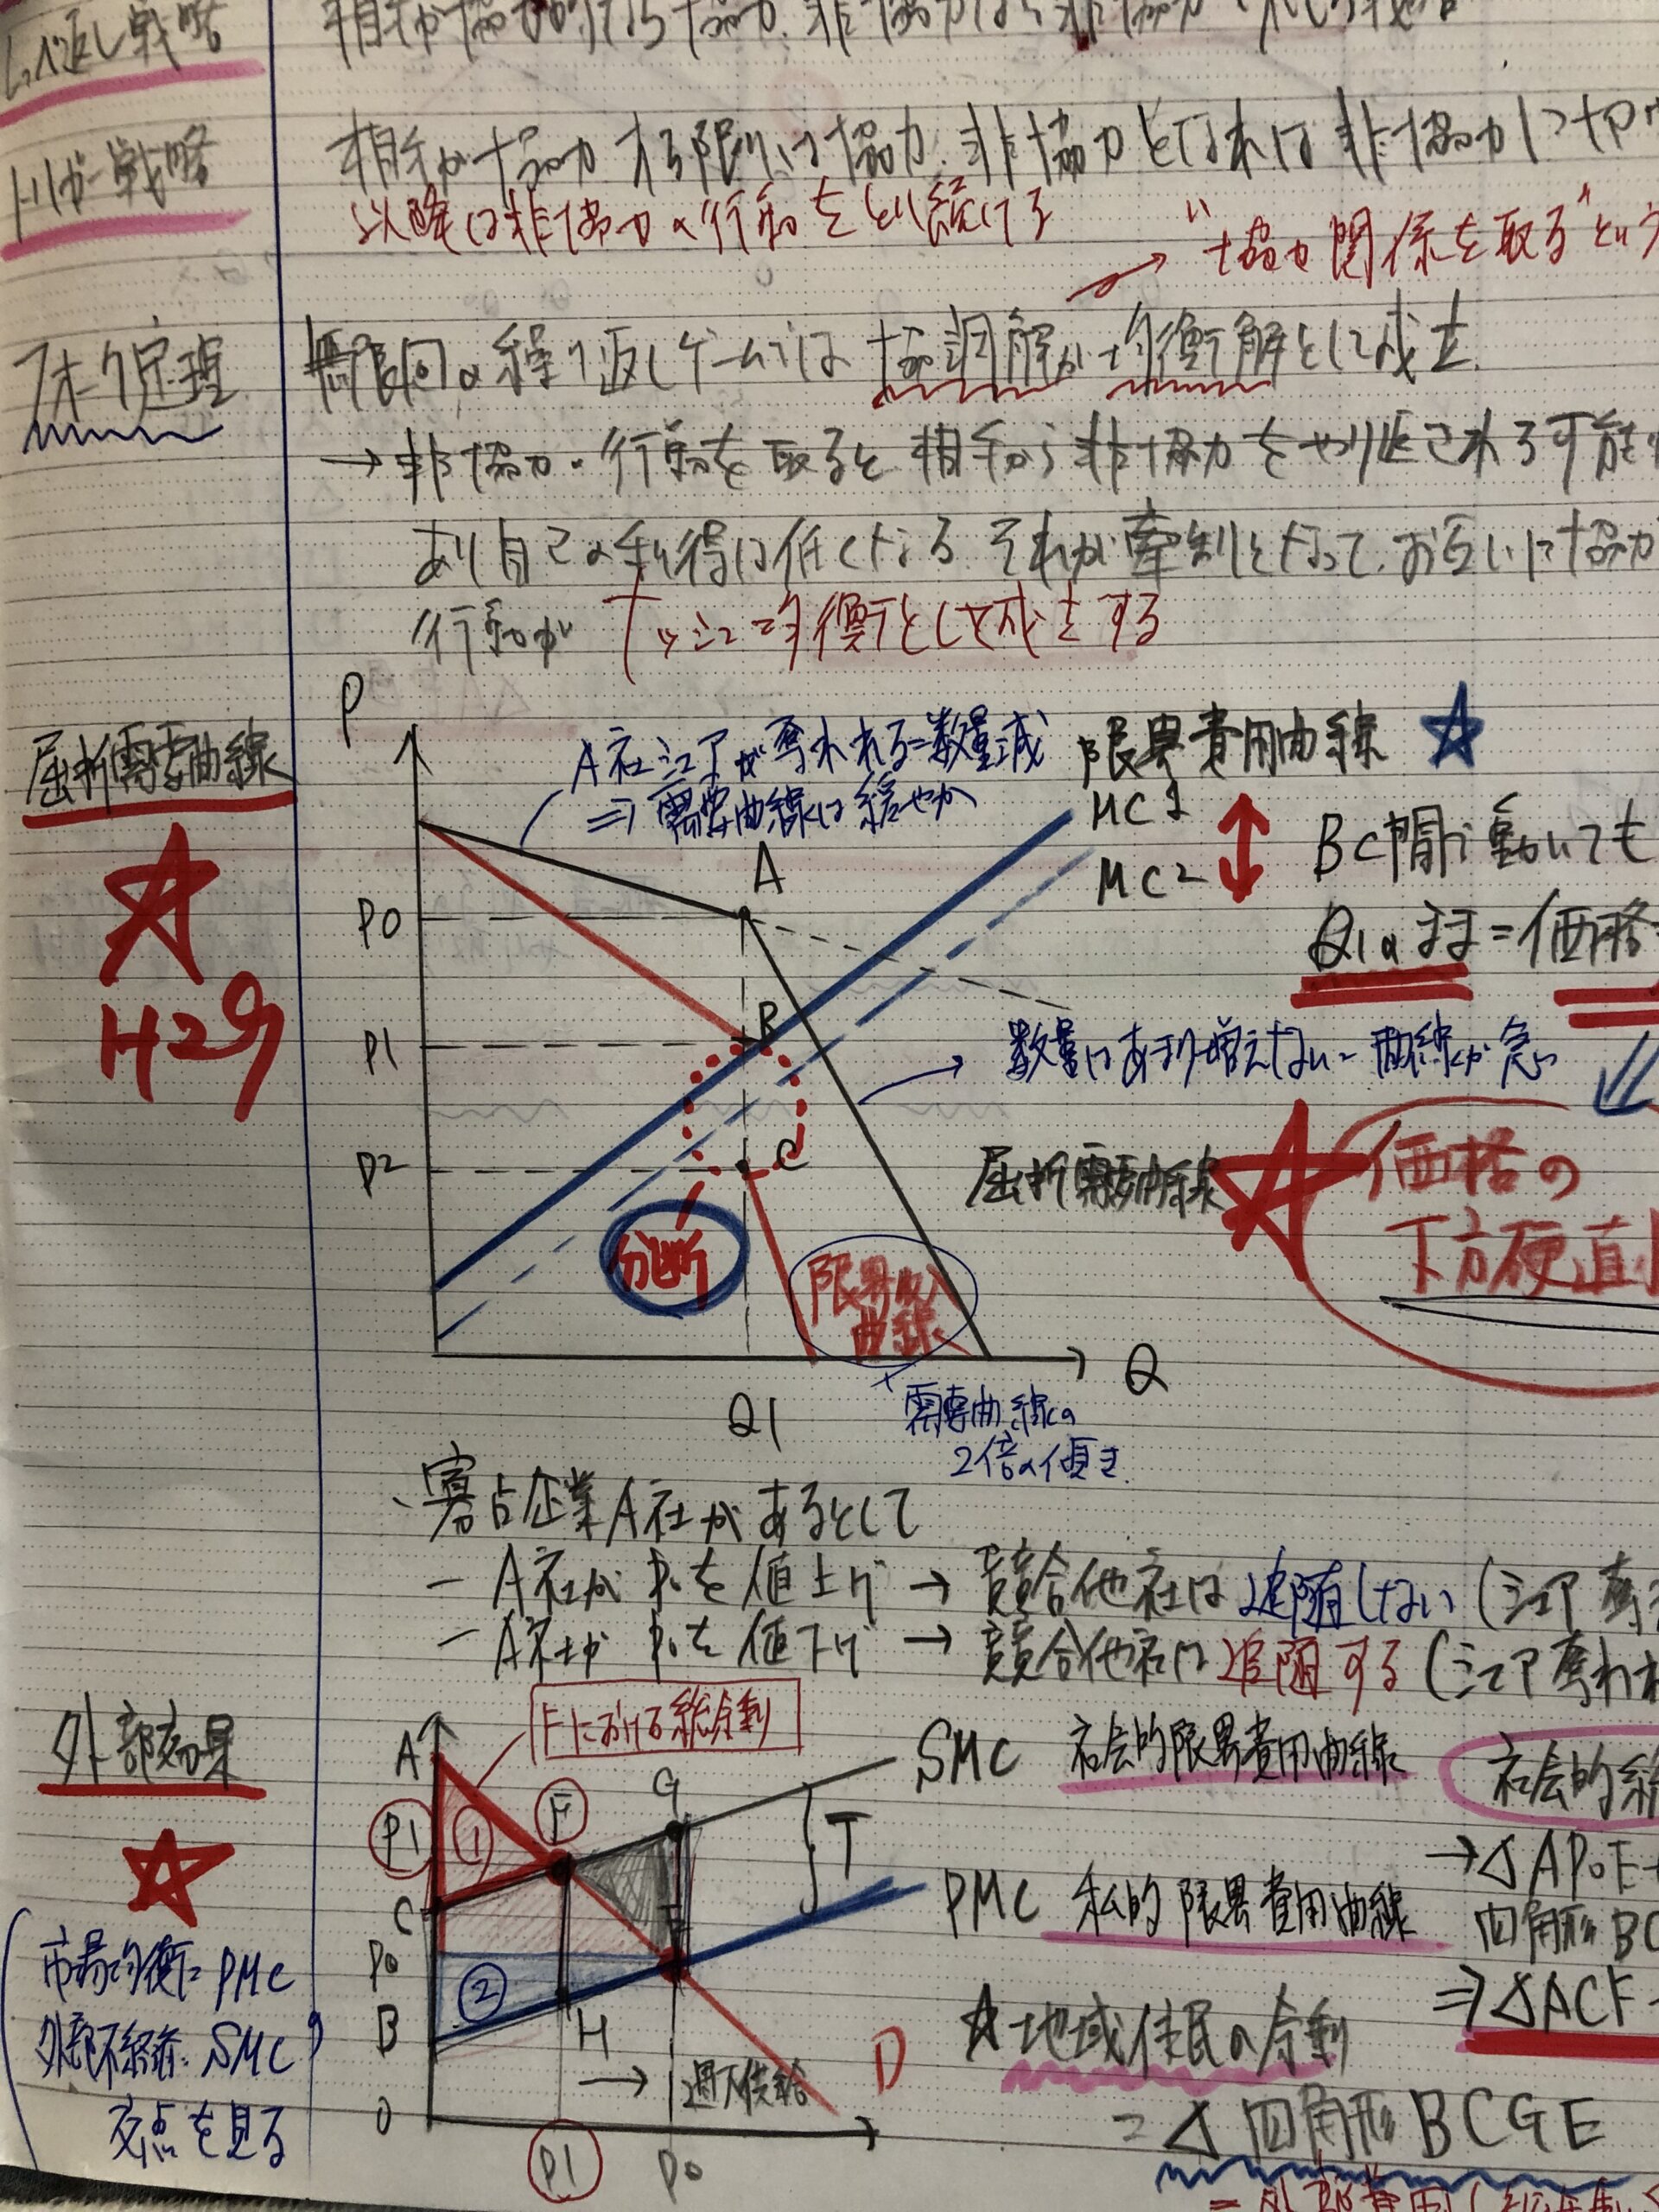 しっぺ返し戦略
トリガー戦略
相手が協力する限りは協力、非協力となれば非協力に切
以降は非協力の行動をとり続ける
"協力関係を取る"という
フォーク定理
無限回の繰り返しゲームでは協調解が均衡解として成立
→非協力の行動を取ると相手から非協力をやり返される可能
あり自己の利得は低くなる それが牽制となって、お互いに協力
行動が ナッシュ均衡として成立する
屈折需要曲線
H29
P
A社シェアが奪われる=数量減
⇒需要曲線は緩やか
限界費用曲線
MC1
MC2
BC間で動いても
Q1のまま=価格
A
P0
B
P1
数量はあまり増えない=曲線が急
C
P2
屈折需要曲線
価格の
下方硬直
分断
限界収入
曲線
Q
Q1
需要曲線の
2倍の傾き
、寡占企業A社があるとして
ーA社がP0を値上げ→競合他社は追随しない(シェア奪
ーA社がP0を値下げ→競合他社は追随する(シェア奪われ
外部効果
Fにおける総余剰
A
SMC 社会的限界費用曲線
社会的総
P1
①
F
G
T
→△AP0E
C
PMC 私的限界費用曲線
四角形BC
市場均衡:PMC
外部不経済:SMC
交点を見る
P0
E
B
②
H
→過大供給
D
⇒△ACF
☆地域住民の余剰
=△四角形BCGE
0
P1
P0